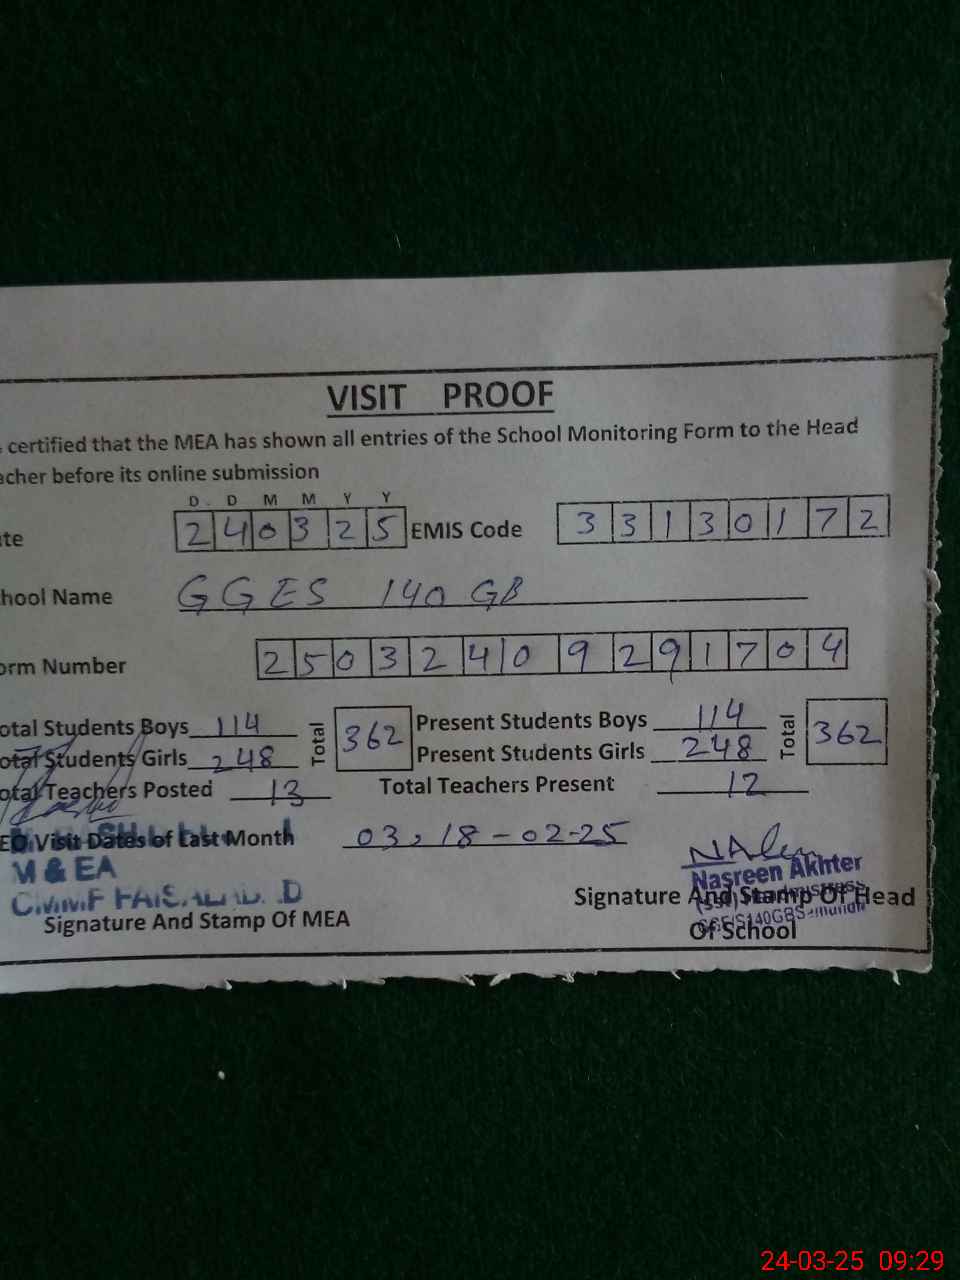 VISIT PROOF
certified that the MEA has shown all entries of the School Monitoring Form to the Head
acher before its online submission
D D M M Y Y
te 240325 EMIS Code 33130172
hool Name GGES 140 GB
orm Number 25032409291704
otal Students Boys 114 Total 362 Present Students Boys 114 Total 362
otal Students Girls 248 Present Students Girls 248
otal Teachers Posted 13 Total Teachers Present 12
EO Visit Dates of Last Month 03, 18-02-25
M & EA
CMMF FAISALABAD
Signature And Stamp Of MEA
Nasreen Akhter
Signature And Stamp Of Head
Of School
24-03-25 09:29